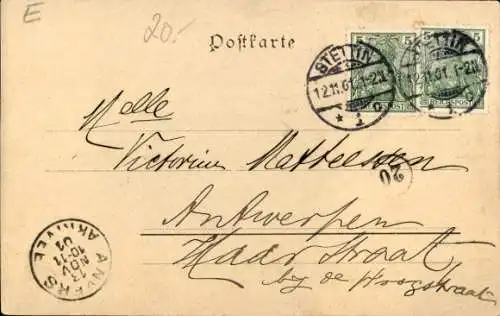 E
20.-
Postkarte
5 5
STETTIN
12.11.01 1-2N
* 1 c
STETTIN
12.11.01 1-2N
REICHSPOST
Melle
Victorine Matthessen
20
Antwerpen
Haar Straat
bij de Hoogstraat
ANVERS
13
NOV
10-11
01
ARRIVEE